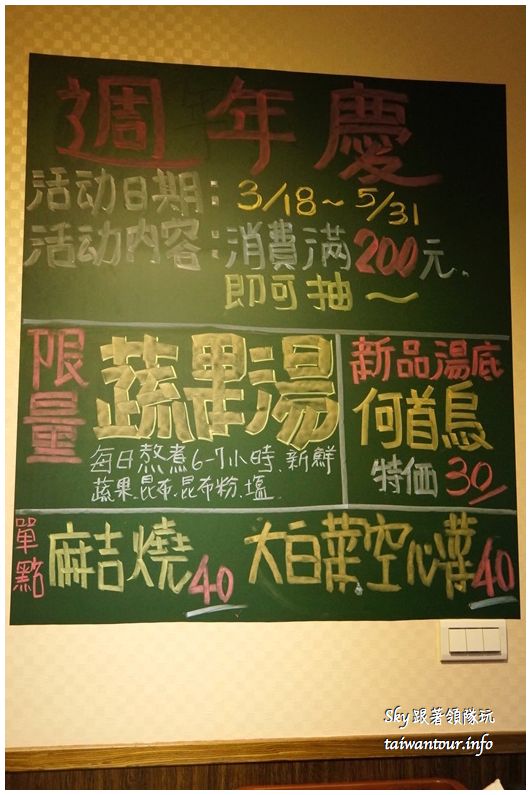 週年慶
活动日期：3/18~5/31
活动内容：消費滿200元、
即可抽~
限量
蔬果湯
每日熬煮6-7小時、新鮮
蔬果、昆布、昆布粉、塩
新品湯底
何首烏
特価30/
單點
麻吉燒40
大白菜空心菜40
Sky 跟著領隊玩
taiwantour.info